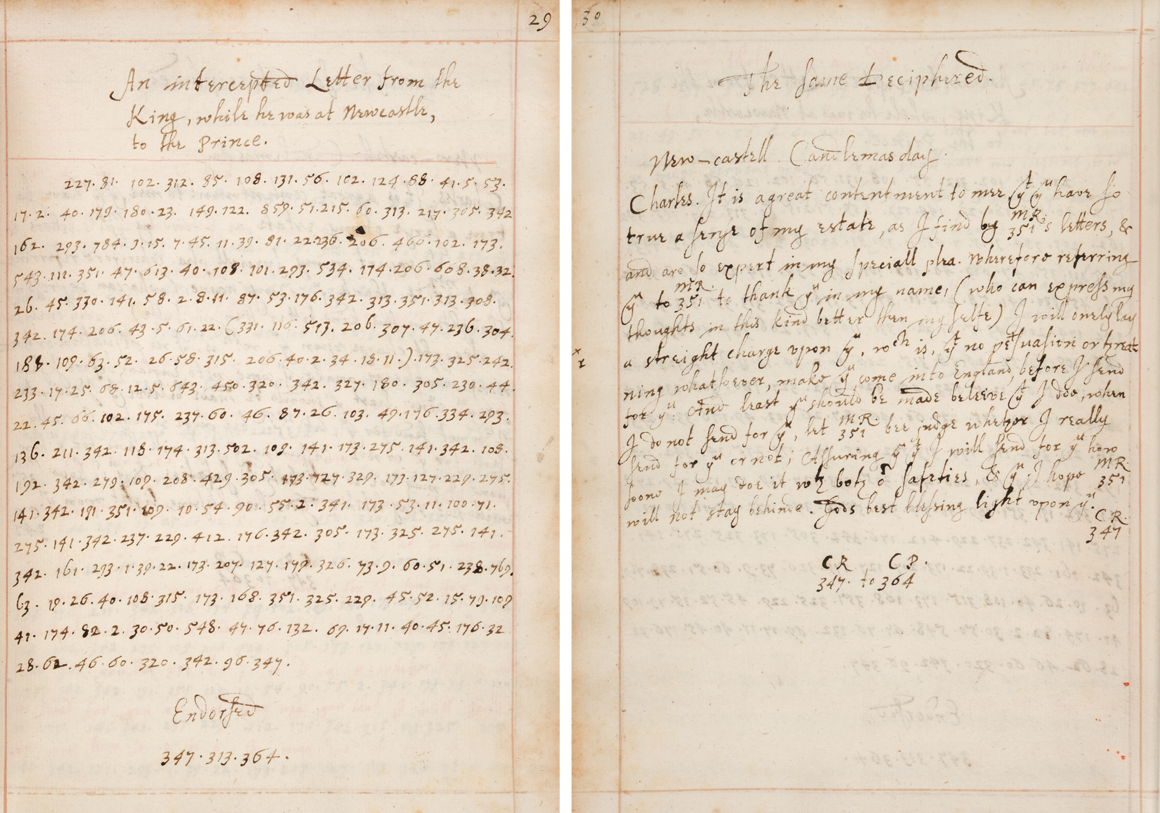 29
An intercepted Letter from the
King, while he was at Newcastle,
to the Prince.
227. 81. 102. 312. 85. 108. 131. 56. 102. 124. 68. 41. 5. 53.
17. 2. 40. 179. 180. 23. 149. 122. 859. 51. 215. 60. 313. 217. 305. 342
162. 293. 784. 9. 15. 7. 45. 11. 39. 81. 22. 236. 206. 460. 102. 173.
543. 111. 351. 47. 613. 40. 108. 101. 293. 534. 174. 206. 608. 38. 32.
26. 45. 330. 141. 58. 2. 8. 11. 87. 53. 176. 342. 313. 351. 313. 308.
342. 174. 206. 43. 5. 61. 22. (331. 116. 513. 206. 307. 47. 236. 304.
188. 109. 63. 52. 26. 58. 315. 206. 40. 2. 34. 18. 11.) 173. 325. 242.
233. 17. 25. 68. 12. 5. 643. 450. 320. 342. 327. 180. 305. 230. 44.
22. 45. 66. 102. 175. 237. 60. 46. 87. 26. 103. 49. 176. 334. 293.
136. 211. 342. 118. 174. 313. 502. 109. 141. 173. 275. 141. 342. 108.
192. 342. 279. 109. 208. 429. 305. 173. 127. 329. 173. 127. 229. 275.
141. 342. 191. 351. 109. 10. 54. 90. 55. 2. 341. 173. 53. 11. 100. 71.
275. 141. 342. 237. 229. 412. 176. 342. 305. 173. 325. 275. 141.
342. 161. 293. 1. 39. 22. 173. 207. 127. 179. 326. 73. 9. 60. 51. 238. 769.
63. 19. 26. 40. 108. 315. 173. 168. 351. 325. 229. 45. 52. 15. 79. 109
41. 174. 82. 2. 30. 50. 548. 47. 76. 132. 69. 17. 11. 40. 45. 176. 32
28. 62. 46. 60. 320. 342. 96. 347.
Endorsed
347. 313. 364.
30
The same Deciphered.
New-castell. Candlemas day.
Charles. It is a great contentment to mee yt yu have so
true a sense of my estate, as I find by MR 351's letters, &
and are so expert in my speciall plea. Wherefore referring
yu to MR 351 to thank yu in my name, (who can express my
thoughts in this kind better then my selfe) I will onely lay
a streight charge upon yu, wch is, yt no pswasion or threat
ning whatsoever, make yu come into England before I send
for yu. And least yu should be made beleeve yt I doo, when
I do not send for yu, let MR 351 bee judge whether I really
send for yu or not; Assuring yu yt I will send for yu how
soone I may doe it wth both or safeties, & yu, I hope MR 351
will not stay behinde. Gods best blessing light upon yu
CR
347
CR CP
347. to 364